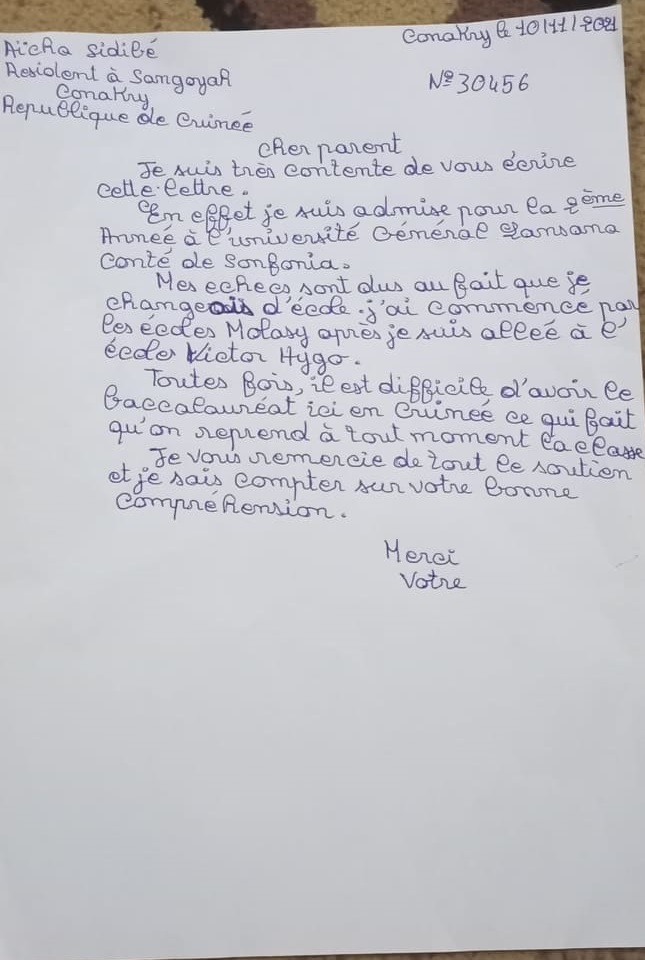 Aïcha Sidibé
Conakry le 10/11/2021
Resident à Samgoyah
N° 30456
Conakry
Republique de Guinéé
Cher parent
Je suis très contente de vous écrire
cette lettre.
En effet je suis admise pour la 2ème
Année à l'université Général Lansana
Conté de Sonfonia.
Mes echecs sont dus au fait que je
changeais d'école. j'ai commencé par
les écoles Molasy après je suis alleé à l'
école Victor Hygo.
Toutes fois, il est difficile d'avoir le
baccalauréat ici en Guinéé ce qui fait
qu'on reprend à tout moment la classe
Je vous remercie de tout le soutien
et je sais compter sur votre bonne
compréhension.
Merci
Votre